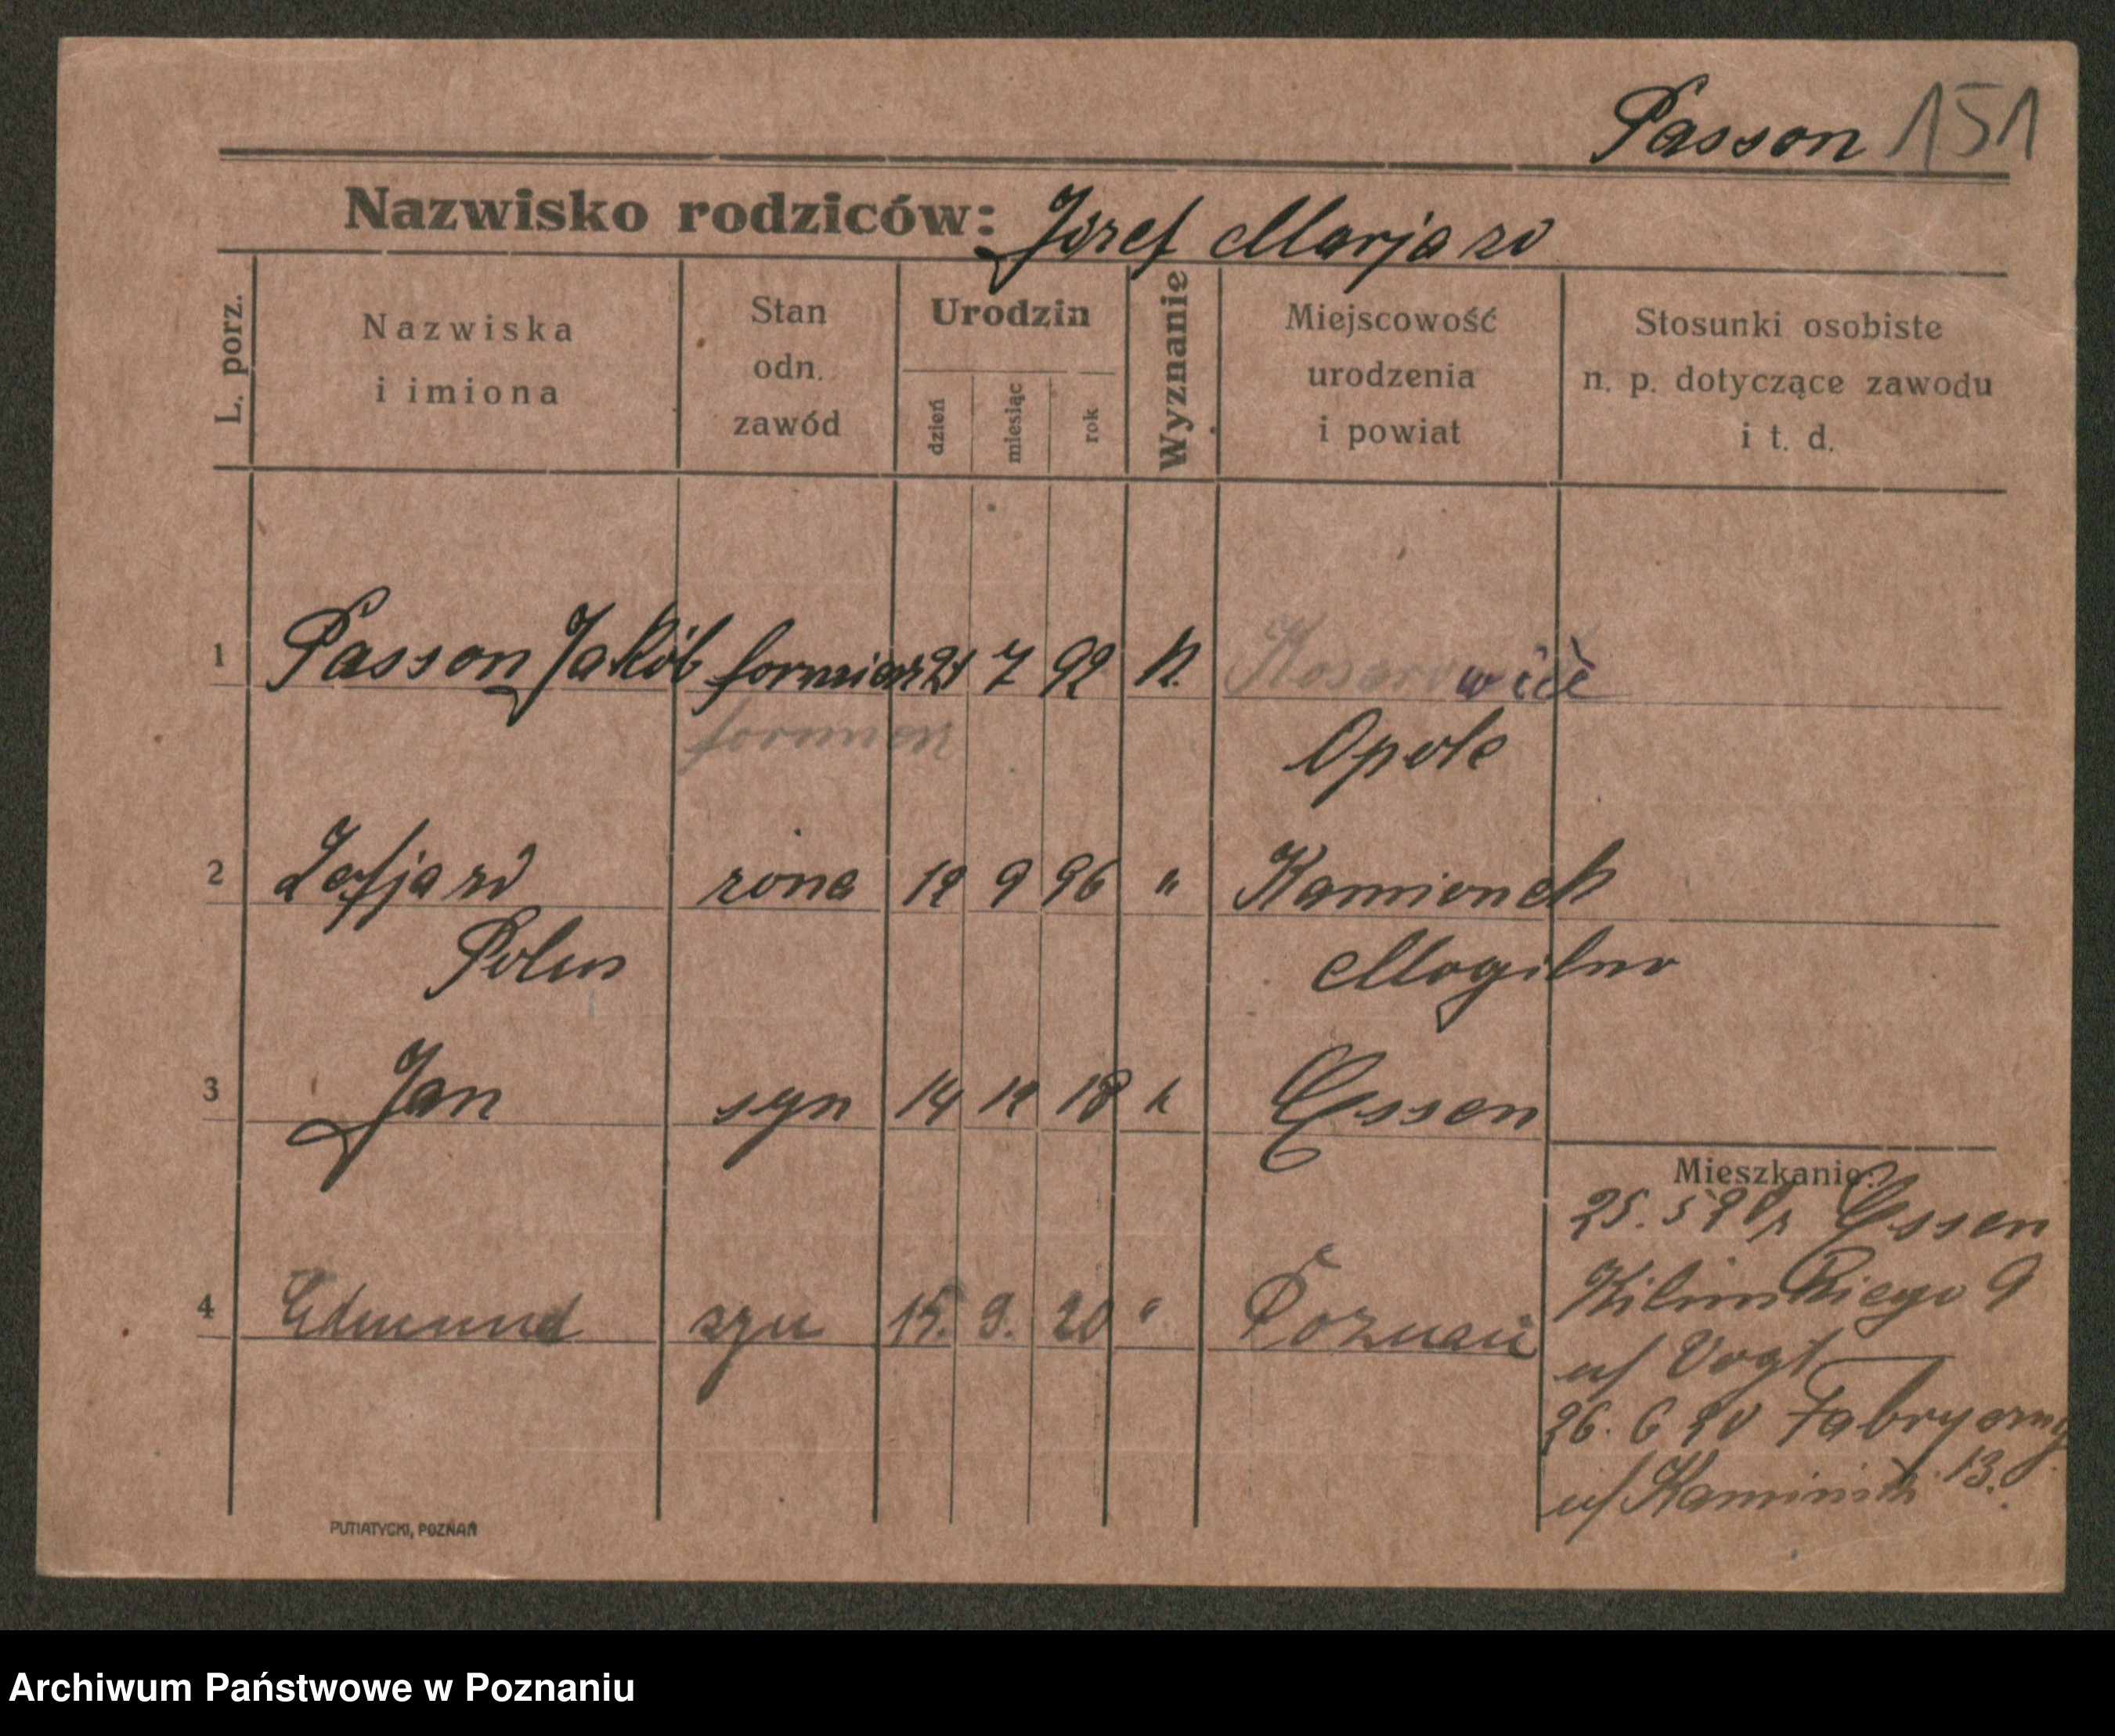 Passon 151
Nazwisko rodziców: Józef Marja zd
L. porz.
Nazwiska i imiona
Stan odn. zawód
Urodzin
dzień
miesiąc
rok
Wyznanie
Miejscowość urodzenia i powiat
Stosunki osobiste n. p. dotyczące zawodu i t. d.
1 Passon Jakób formierz 21 7 92 k.
formierz
Opole
2 Zofja zd żona 12 9 96 " Kamionek
Polus Mogilno
3 Jan syn 14 12 18 " Essen
Mieszkanie:
25. 5 20 z Essen
Kilinskiego 9
4 Edmund syn 15. 9. 20 " Poznań
u/ Vogt
26. 6 20 Fabryczny
13.
u/
PUTIATYCKI, POZNAŃ
Archiwum Państwowe w Poznaniu